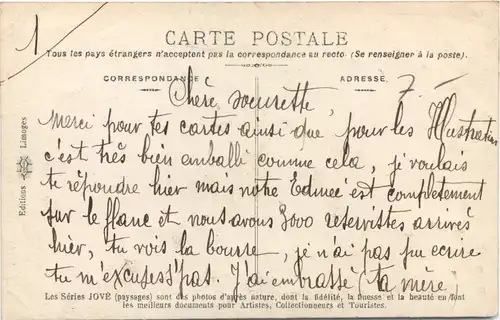 1
CARTE POSTALE
Tous les pays étrangers n'acceptent pas la correspondance au recto. (Se renseigner à la poste).
CORRESPONDANCE
ADRESSE
7. —
Chère soeurette,
Merci pour tes cartes ainsi que pour les Illustration
c'est très bien amballé comme cela, je voulais
te répondre hier mais notre Edmée est complètement
sur le flanc et nous avons 3000 réservistes arrivés
hier, tu vois la bourre, je n'ai pas pu écrire
tu m'excuses s'pas. J'ai embrassé (ta mère)
Editions Limoges
Les Séries JOVÉ (paysages) sont des photos d'après nature, dont la fidélité, la finesse et la beauté en font
les meilleurs documents pour Artistes, Collectionneurs et Touristes.